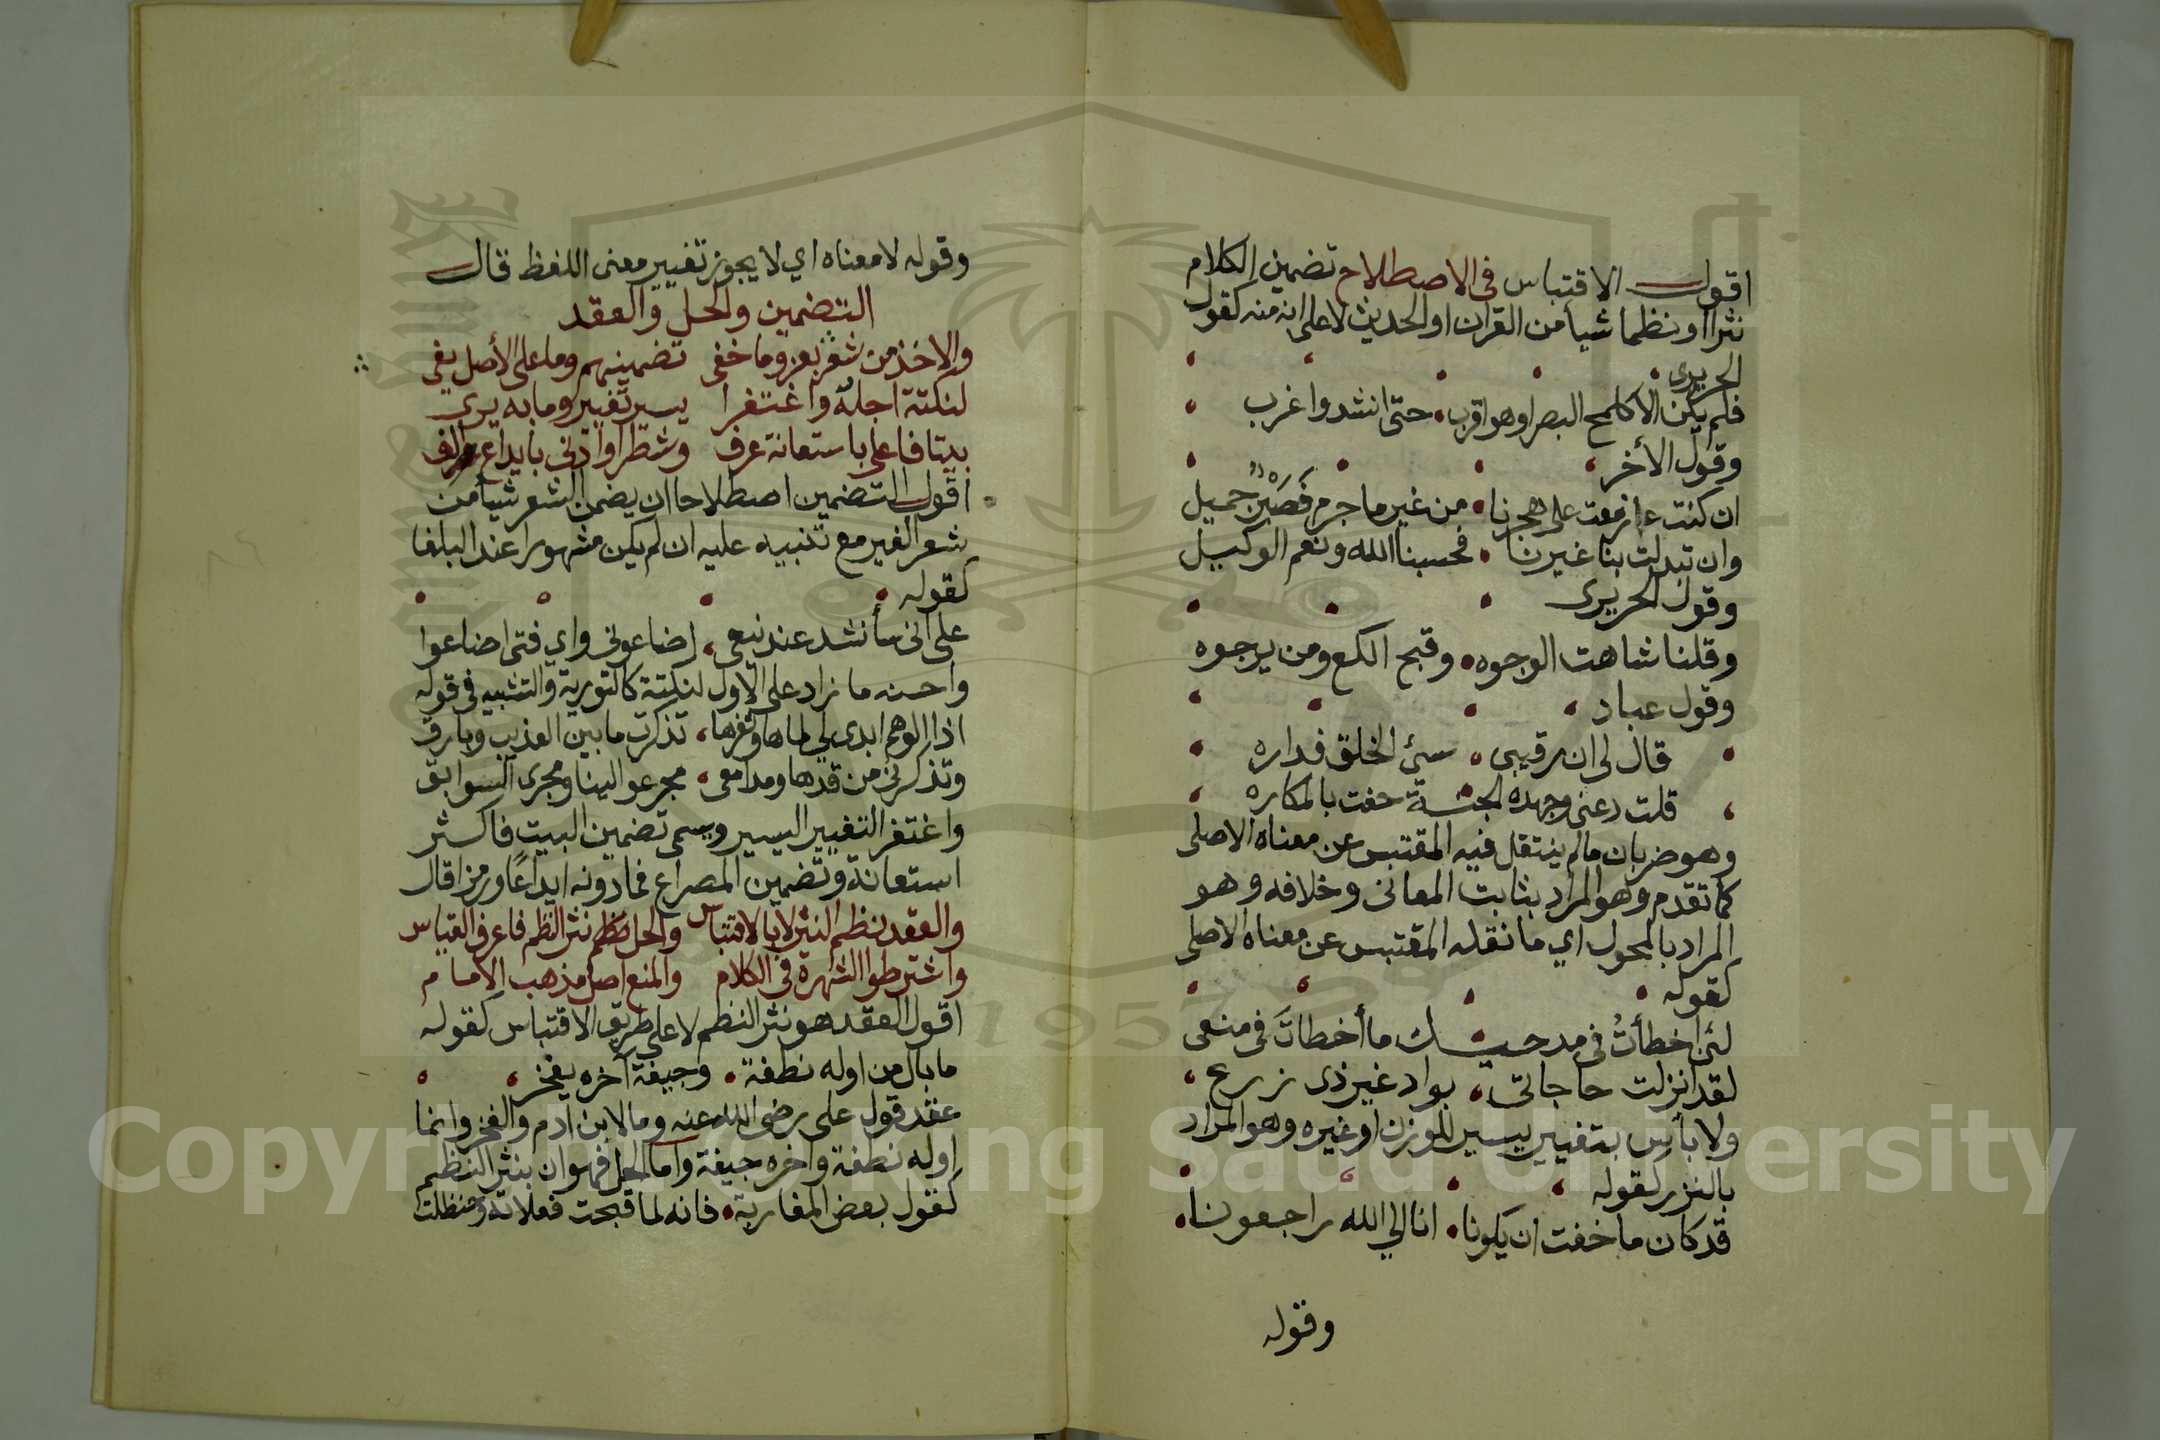 اقول الاقتباس في الاصطلاح تضمين الكلام
نثرا او نظما شيا من القرآن او الحديث لا على انه منه كقول
الحريرى
فلم يكن الا كلمح البصر او هو اقرب حتى انشد واغرب
وقول الأخر
ان كنت ازمعت على هجرنا من غير ما جرم فَصَبْرٌ جميل
وان تبدلت بنا غيرنا فحسبنا الله ونعم الوكيل
وقول الحريرى
وقلنا شاهت الوجوه وقبح الكع ومن يرجوه
وقول عباد
قال لى ان رقيبى سئ الخلق فداره
قلت دعنى وجهك الجنة حفت بالمكاره
وهو ضربان ما لم ينتقل فيه المقتبس عن معناه الاصلى
كما تقدم وهو المراد بثابت المعانى وخلافه وهو
المراد بالمحول اي ما نقله المقتبس عن معناه الاصلى
كقوله
لئن اخطأتُ فى مدحيك ما أخطاتَ فى منعى
لقد انزلت حاجاتى بواد غير ذى زرع
ولا بأس بتغيير يسير للوزن او غيره وهو المراد
بالنزر كقوله
قد كان ما خفت ان يكونا انا الى الله راجعونا
وقوله
وقوله لا معناه اي لا يجوز تغيير معنى اللفظ قال
التضمين والحل والعقد
والاخذ من شعر بعزو ما خفى تضمينهم وما على الأصل يفي
لنكتة اجله واغتفرا يسير تغيير وما به يرى
بيتا فاعلى باستعانة عرف وشطرا او ادنى بايداع الف
اقول التضمين اصطلاحا ان يضمن الشعر شيأ من
شعر الغير مع تنبيه عليه ان لم يكن مشهورا عند البلغا
كقوله
على انى سأنشد عند بيعى اضاعونى واي فتى اضاعوا
واحسنه ما زاد على الاول لنكتة كالتورية والتشبيه فى قوله
اذا الوهم ابدى لي لماها وثغرها تذكرت ما بين العذيب وبارق
وتذكرنى من قدها ومدامعى مجر عوالينا ومجرى السوابق
واغتفر التغيير اليسير ويسمى تضمين البيت فاكثر
استعانة وتضمين المصراع فما دونه ايداعًا ورمزا قال
والعقد نظم النثر لا بالاقتباس والحل نثر النظم فاعرف القياس
واشترطوا الشهرة فى الكلام والمنع اصل مذهب الامام
اقول العقد هو نثر النظم لا على طريق الاقتباس كقوله
ما بال من اوله نطفة وجيفة آخره يفخر
عقد قول على رضى الله عنه وما لابن ادم والفخر وانما
اوله نطفة واخره جيفة واما الحل فهو ان ينثر النظم
كقول بعض المغاربة فانه لما قبحت فعلاته وحنظلت
Copyright © King Saud University
1957